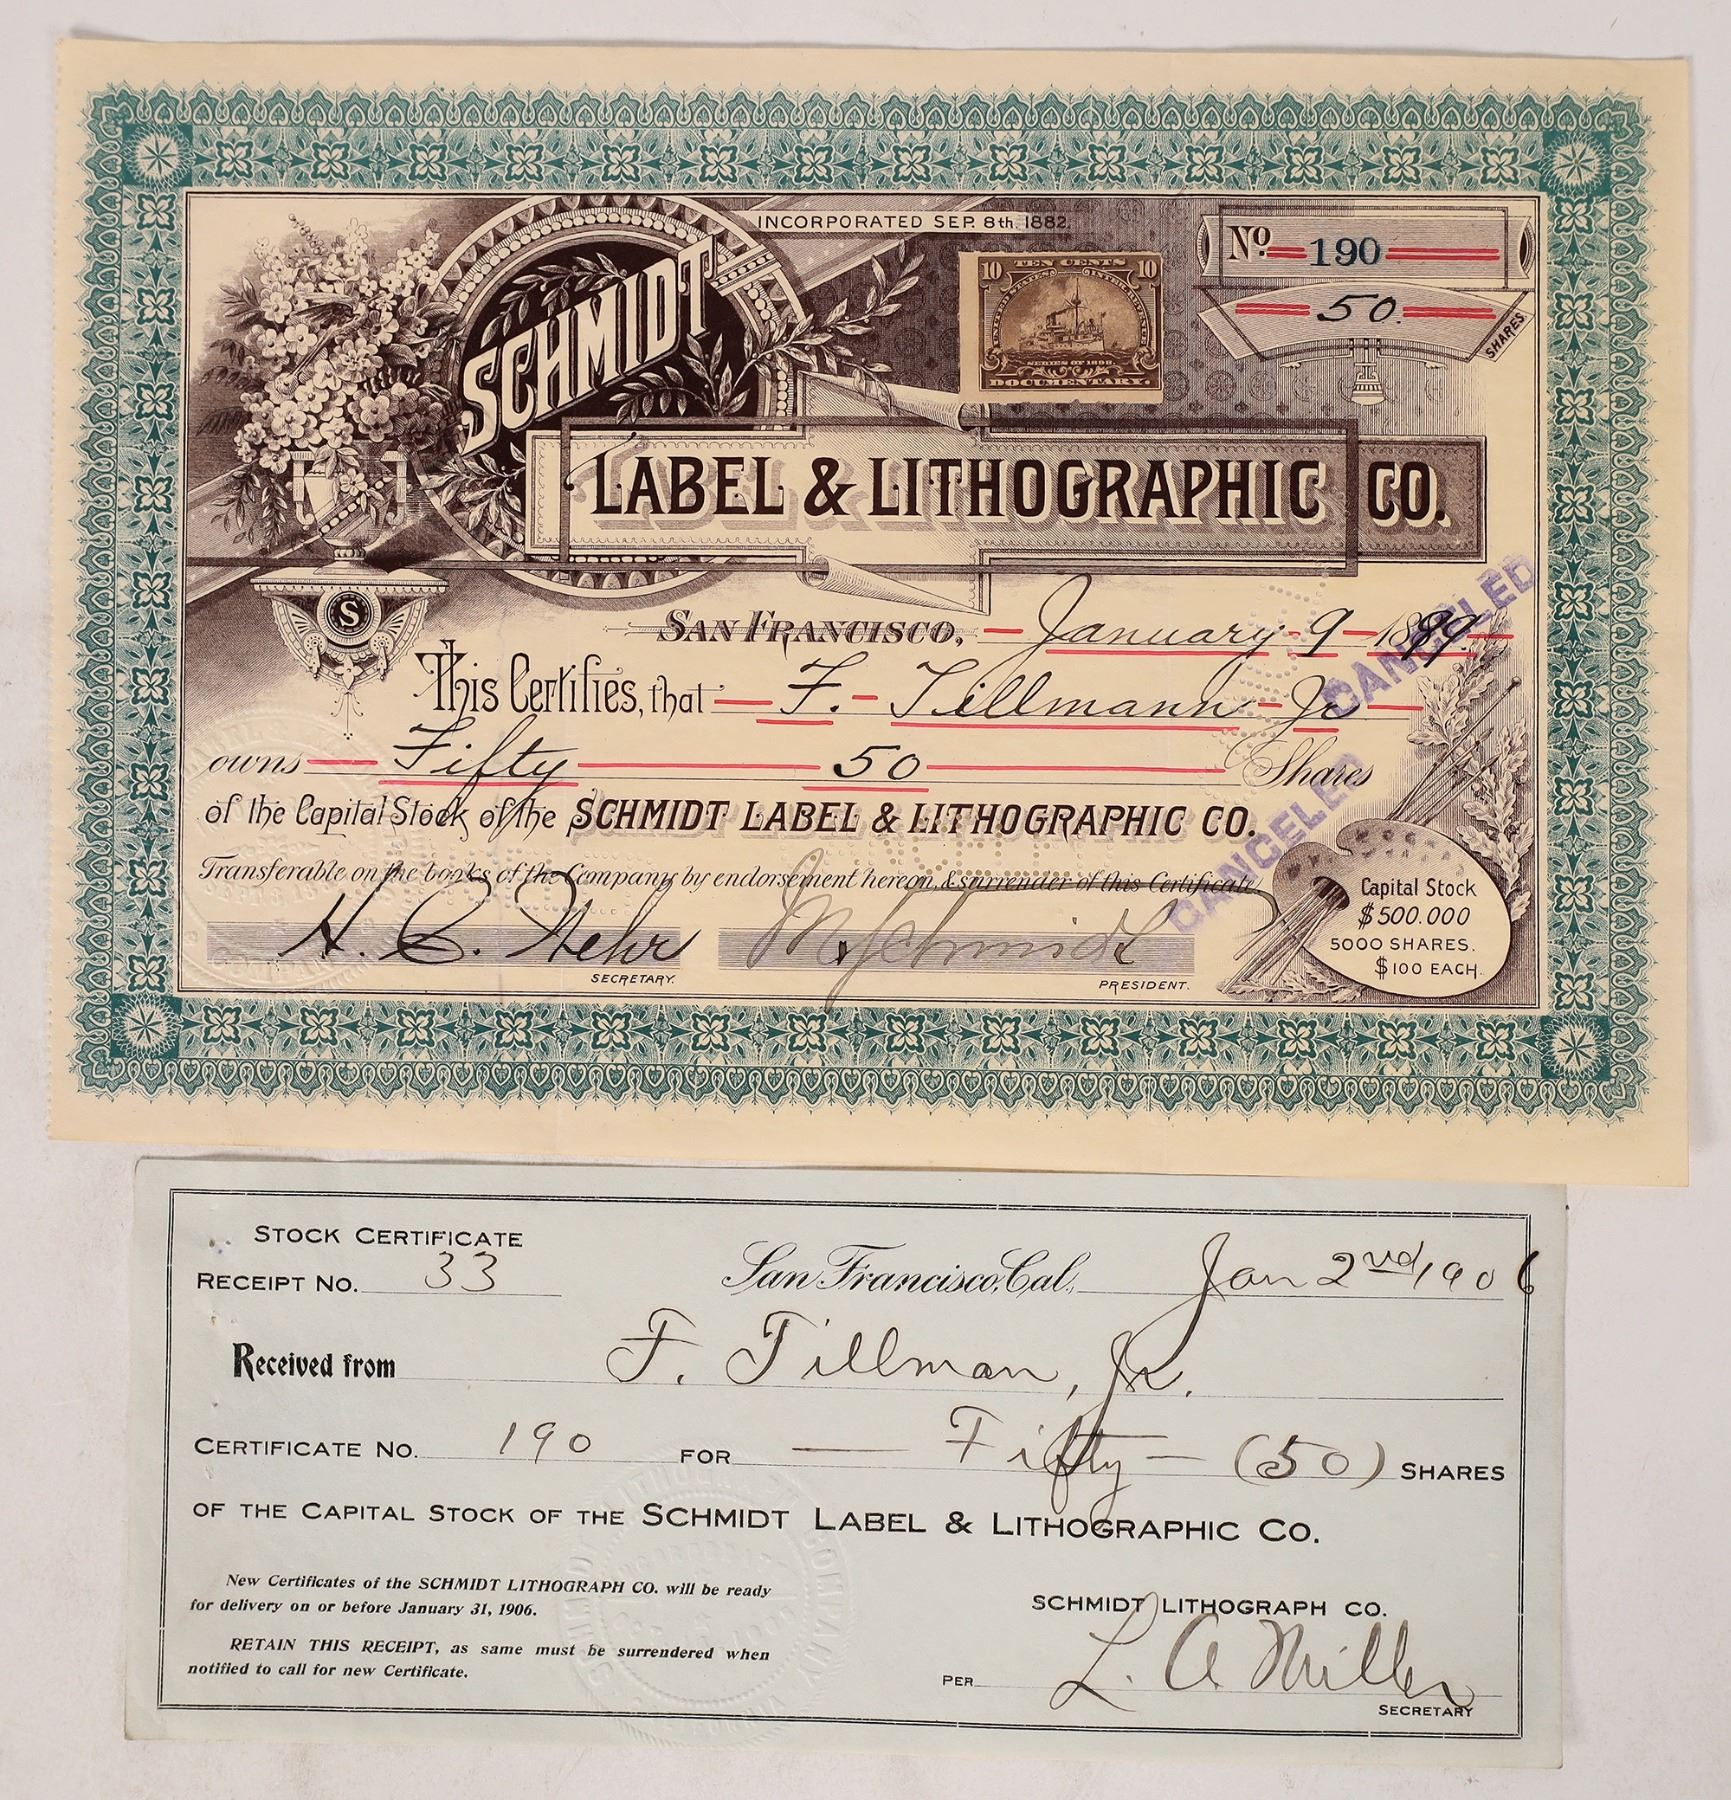 INCORPORATED SEP. 8th. 1882.
No. 190
50. SHARES.
10 TEN CENTS 10
UNITED STATES INTER. REVENUE
SERIES OF 1898
DOCUMENTARY
SCHMIDT
LABEL & LITHOGRAPHIC CO.
S
SAN FRANCISCO, January 9 1899
This Certifies, that F. Tillmann Jr
owns Fifty 50 Shares
of the Capital Stock of the SCHMIDT LABEL & LITHOGRAPHIC CO.
Transferable on the books of the Company by endorsement hereon, & surrender of this Certificate
CANCELED
CANCELED
SECRETARY.
M. Schmidt
PRESIDENT.
Capital Stock
$500.000
5000 SHARES.
$100 EACH.
STOCK CERTIFICATE
RECEIPT No. 33
San Francisco, Cal., Jan 2nd 1906
Received from F. Tillman, Jr.
CERTIFICATE NO. 190 FOR Fifty (50) SHARES
OF THE CAPITAL STOCK OF THE SCHMIDT LABEL & LITHOGRAPHIC CO.
New Certificates of the SCHMIDT LITHOGRAPH CO. will be ready
for delivery on or before January 31, 1906.
RETAIN THIS RECEIPT, as same must be surrendered when
notified to call for new Certificate.
SCHMIDT LITHOGRAPH CO.
PER L. A. Miller
SECRETARY